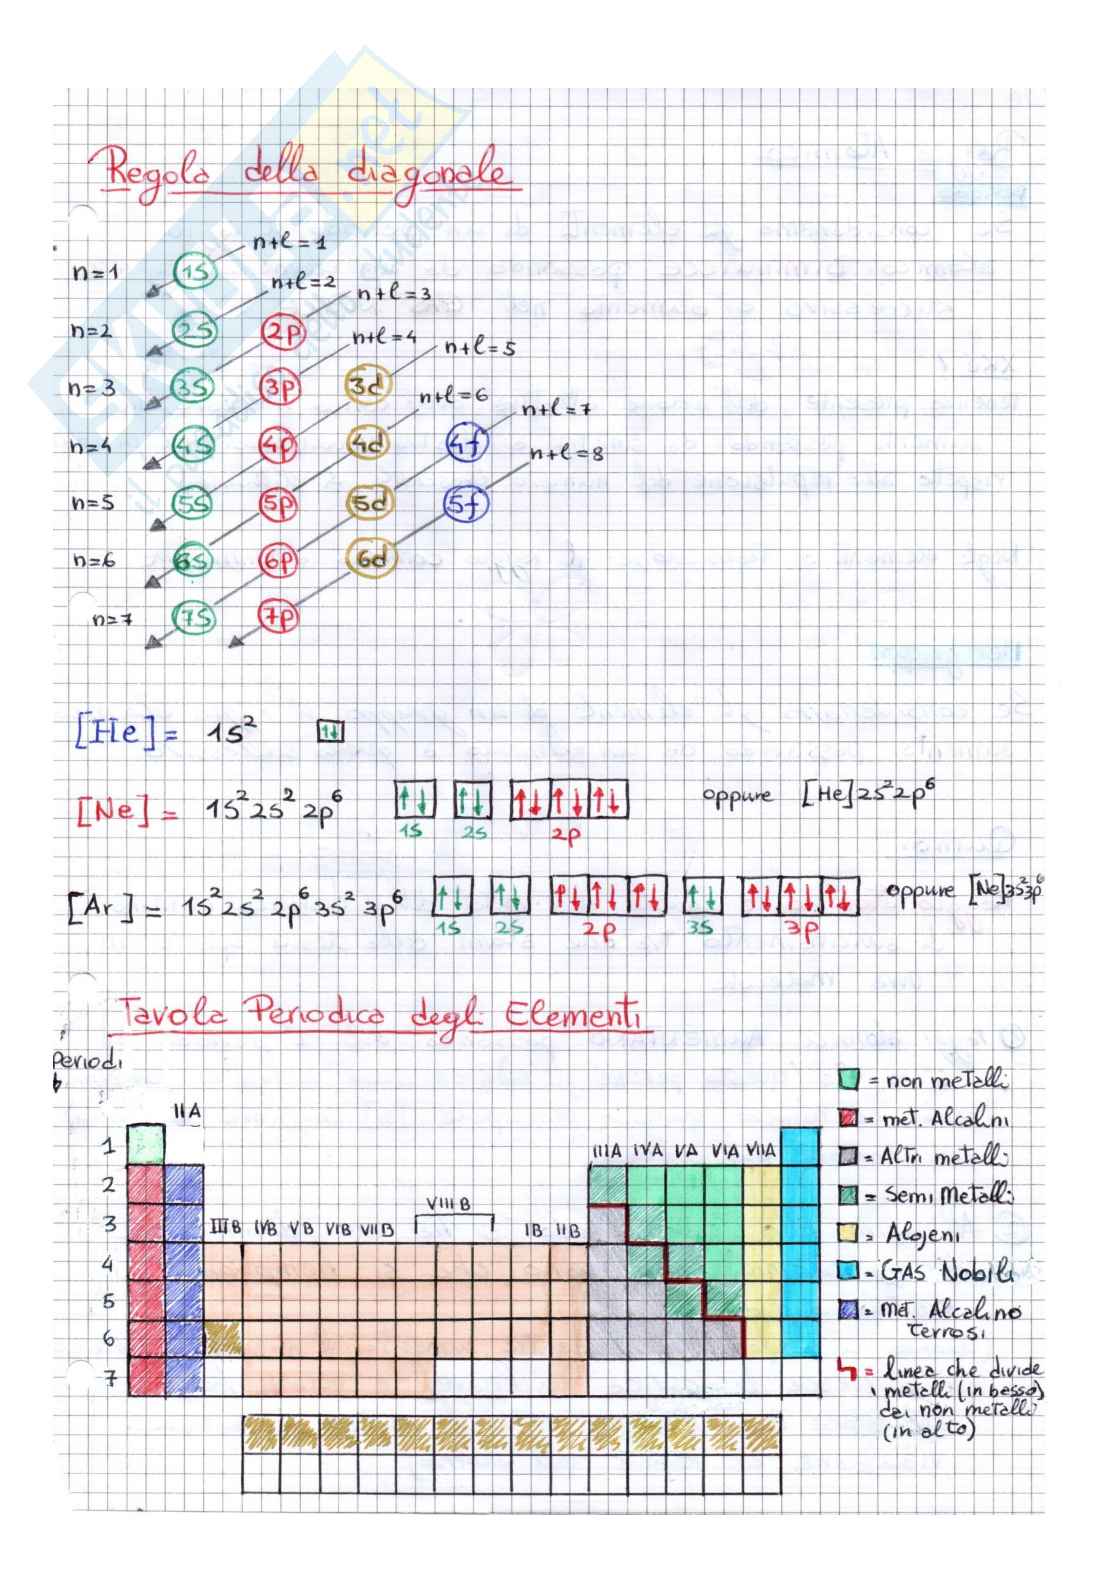 Regola della diagonale
n+l = 1
n=1 1S
n+l=2
n+l=3
n=2 2S 2p
n+l=4
n+l=5
n=3 3S 3p 3d
n+l=6
n+l=7
n=4 4S 4p 4d 4f
n+l=8
n=5 5S 5p 5d 5f
n=6 6S 6p 6d
n=7 7S 7p
[He] = 1S²
[Ne] = 1S² 2S² 2p⁶ oppure [He]2s²2p⁶
1S 2S 2p
[Ar] = 1S² 2S² 2p⁶ 3S² 3p⁶ oppure [Ne]3s²3p⁶
1S 2S 2p 3S 3p
Tavola Periodica degli Elementi
Periodi
II A
1
2
3
4
5
6
7
III B IVB VB VIB VIIB VIII B IB IIB
IIIA IVA VA VIA VIIA
= non metalli
= met. Alcalini
= Altri metalli
= Semi Metalli
= Alogeni
= GAS Nobili
= met. Alcalino
terrosi
= linea che divide
i metalli (in basso)
dai non metalli
(in alto)